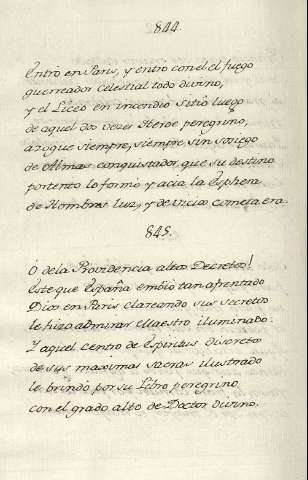 844.
Entrò en Paris, y entrò con el el fuego
guerreador celestial todo divino,
y el Liceo en incendio sitiò luego
de aquel dos veces Heroe peregrino,
azogue siempre, siempre sin sosiego
de Almas conquistador, que su destino
portento lo formò y acia la Esphera
de Hombres luz, y de vicios cometa era.
845.
O de la Providencia altos Decretos!
Este que España embiò tan afrentado
Dios en Paris clareando sus secretos
le hizo admirar Maestro iluminado.
Y aquel centro de Espiritus discretos
de sus maximas sacras ilustrado
le brindò por su Libro peregrino
con el grado alto de Doctor divino.